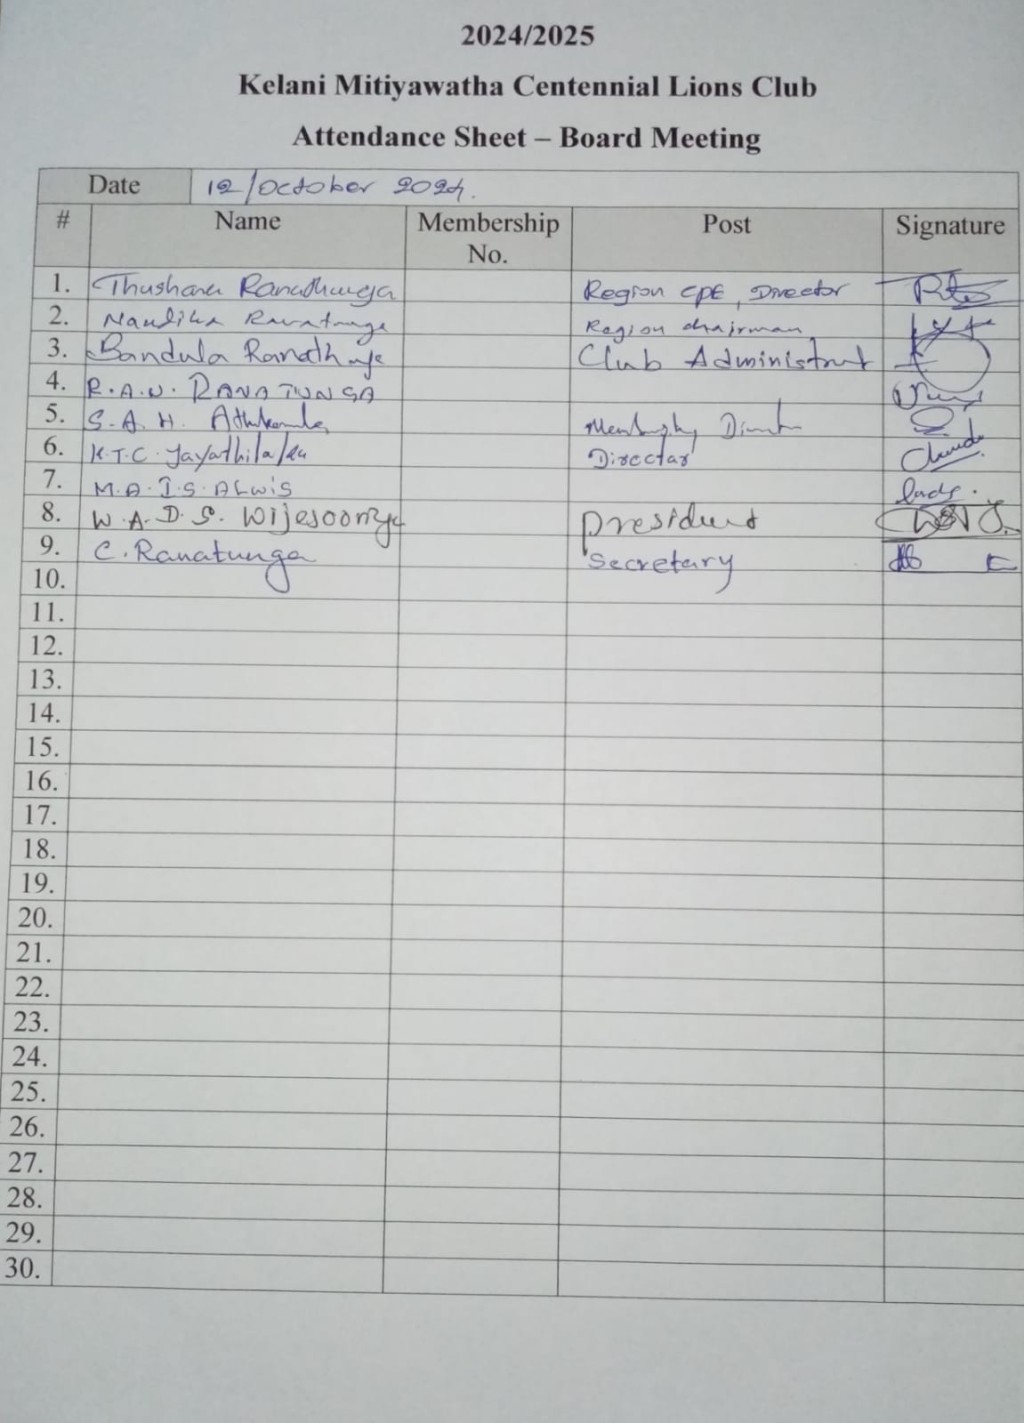 2024/2025
Kelani Mitiyawatha Centennial Lions Club
Attendance Sheet – Board Meeting
Date 12/October 2024.
# Name Membership No. Post Signature
1. Thushara Ranathunga Region CPE, Director
2. Nandika Ranatunga Region chairman
3. Bandula Ranathunge Club Administrat
4. R.A.N. RANATUNGA
5. S.A.H. Director
6. K.T.C. Jayathilaka Director
7. M.A.I.S. ALWIS
8. W.A.D.S. Wijesooriya president
9. C. Ranatunga Secretary
10.
11.
12.
13.
14.
15.
16.
17.
18.
19.
20.
21.
22.
23.
24.
25.
26.
27.
28.
29.
30.